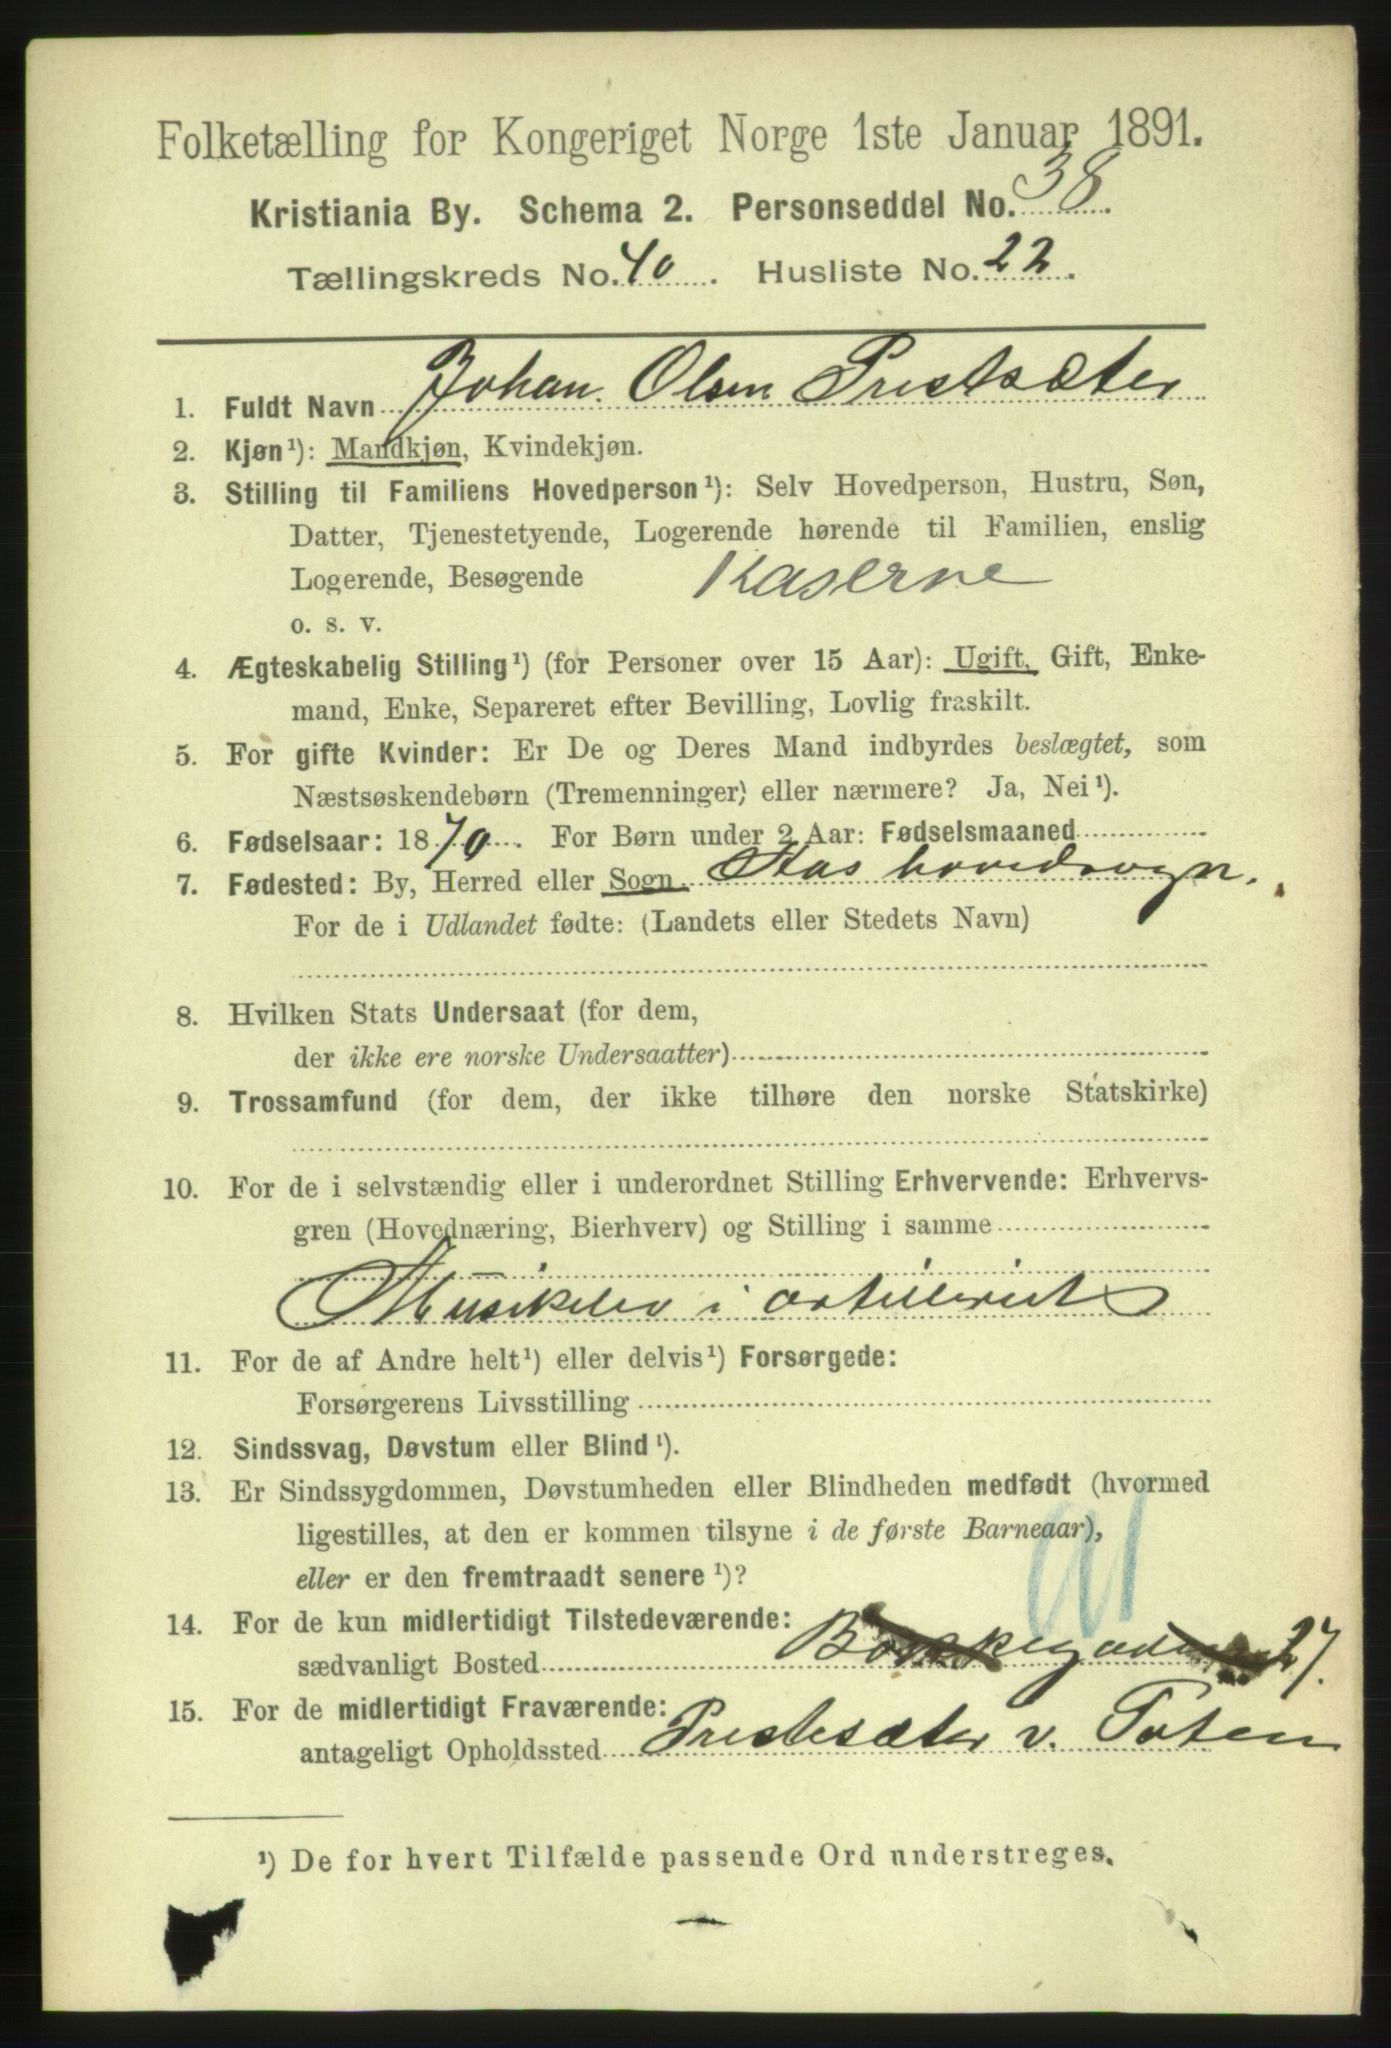 Folketælling for Kongeriget Norge 1ste Januar 1891.
Kristiania By. Schema 2. Personseddel No. 38.
Tællingskreds No. 40. Husliste No. 22.
1. Fuldt Navn Johan Olsen Prestsæter
2. Kjøn¹): Mandkjøn, Kvindekjøn.
3. Stilling til Familiens Hovedperson¹): Selv Hovedperson, Hustru, Søn,
Datter, Tjenestetyende, Logerende hørende til Familien, enslig
Logerende, Besøgende Kaserne
o. s. v.
4. Ægteskabelig Stilling¹) (for Personer over 15 Aar): Ugift, Gift, Enke-
mand, Enke, Separeret efter Bevilling, Lovlig fraskilt.
5. For gifte Kvinder: Er De og Deres Mand indbyrdes beslægtet, som
Næstsøskendebørn (Tremenninger) eller nærmere? Ja, Nei¹).
6. Fødselsaar: 1870. For Børn under 2 Aar: Fødselsmaaned
7. Fødested: By, Herred eller Sogn Aas hovedsogn.
For de i Udlandet fødte: (Landets eller Stedets Navn)
8. Hvilken Stats Undersaat (for dem,
der ikke ere norske Undersaatter)
9. Trossamfund (for dem, der ikke tilhøre den norske Statskirke)
10. For de i selvstændig eller i underordnet Stilling Erhvervende: Erhvervs-
gren (Hovednæring, Bierhverv) og Stilling i samme
Musikelev i artilleriet
11. For de af Andre helt¹) eller delvis¹) Forsørgede:
Forsørgerens Livsstilling
12. Sindssvag, Døvstum eller Blind¹).
13. Er Sindssygdommen, Døvstumheden eller Blindheden medfødt (hvormed
ligestilles, at den er kommen tilsyne i de første Barneaar),
eller er den fremtraadt senere¹)?
14. For de kun midlertidigt Tilstedeværende:
sædvanligt Bosted 27.
15. For de midlertidigt Fraværende:
antageligt Opholdssted Prestesæter v. Toten
¹) De for hvert Tilfælde passende Ord understreges.